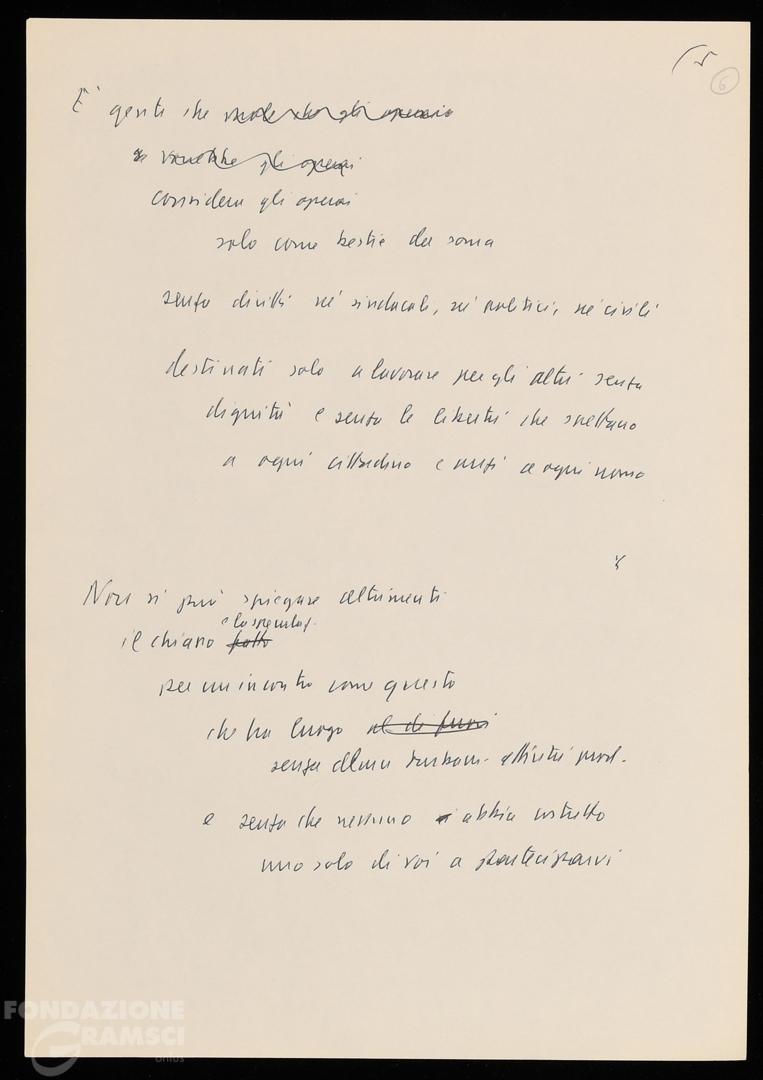 5
6
E' gente che vuole che gli operai
vorrebbe gli operai
considera gli operai
solo come bestie da soma
senza diritti né sindacali, né politici, né civili
destinati solo a lavorare per gli altri senza
dignità e senza le libertà che spettano
a ogni cittadino e anzi a ogni uomo
Non si può spiegare altrimenti
e lo scandal.
il chiasso fatto
per un incontro come questo
che ha luogo al di fuori
senza alcun turbam. attività prod.
e senza che nessuno abbia costretto
uno solo di voi a parteciparvi
FONDAZIONE
GRAMSCI
onlus